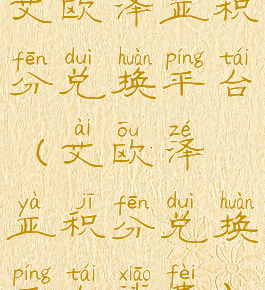 艾欧泽亚积
fēn duì huàn píng tái
分兑换平台
ài ōu zé
（艾欧泽
yà jī fēn duì huàn
亚积分兑换
píng tái xiāo fèi